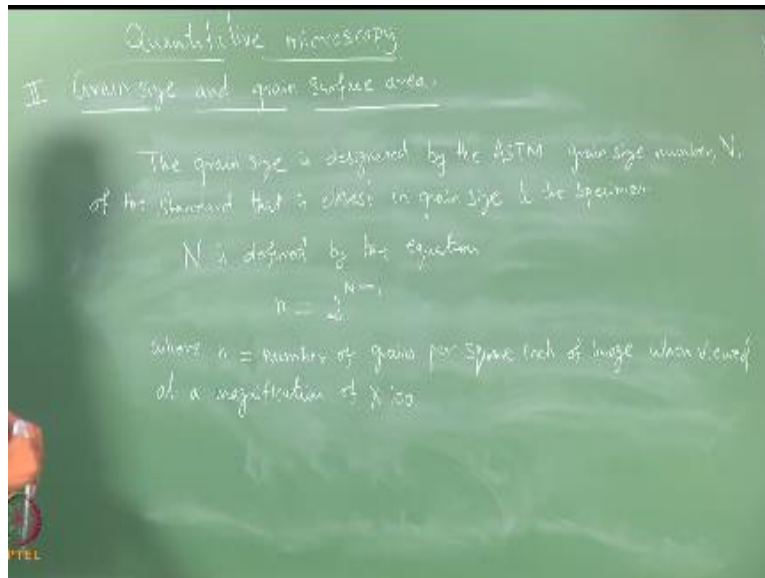 Quantitative microscopy
II Grain size and grain surface area.
The grain size is designated by the ASTM grain size number, N,
of the standard that is closest in grain size to the specimen
N is defined by the equation
n = 2^{N-1}
where n = number of grains per square inch of image when viewed
at a magnification of x 100
PTEL